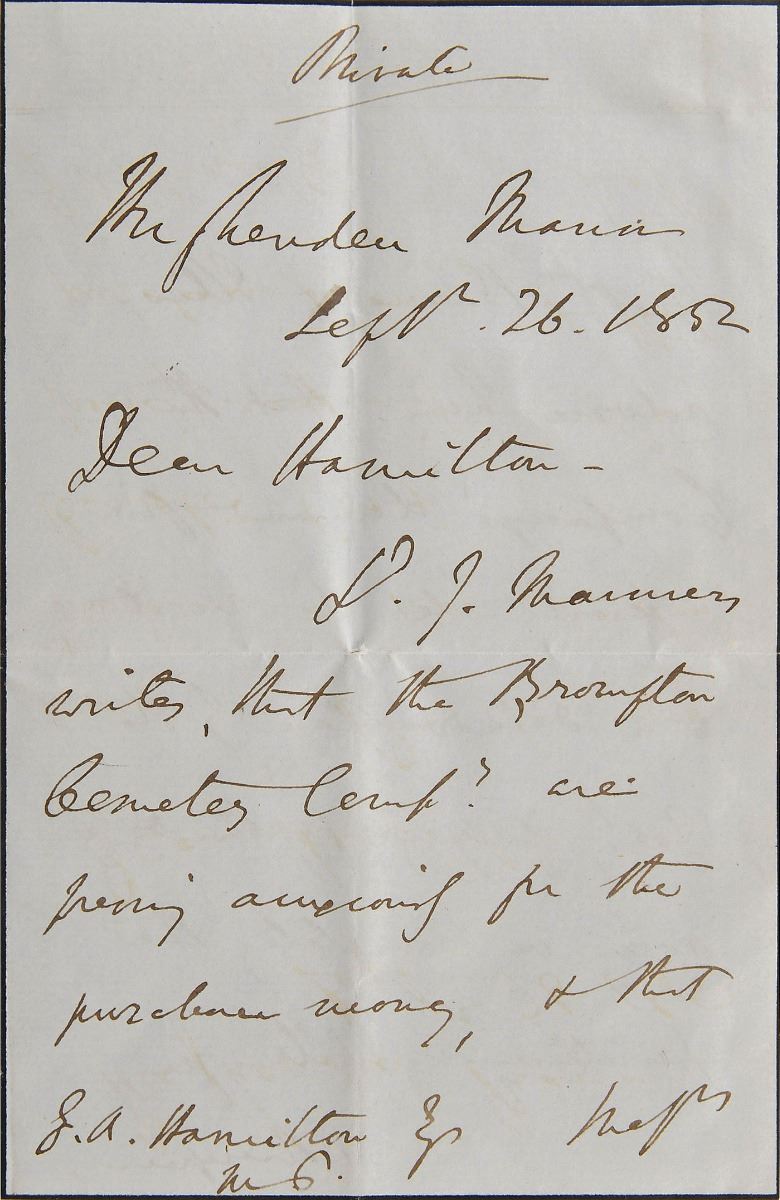 Private
Hughenden Manor
Septr. 26. 1852
Dear Hamilton -
Ld. J. Manners
writes, that the Brompton
Cemetery Compy. are
pressing anxiously for the
purchase money, & that
G. A. Hamilton Esqr Messrs
M P.